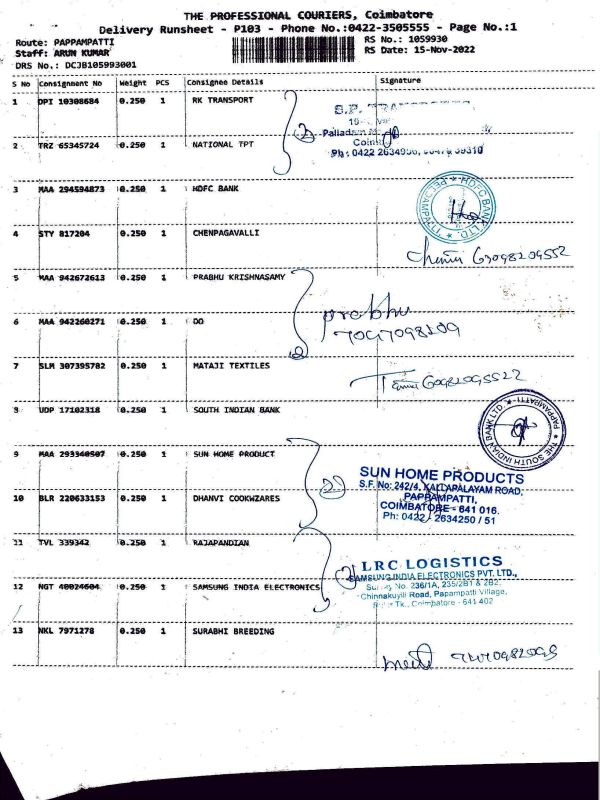 THE PROFESSIONAL COURIERS, Coimbatore
Delivery Runsheet - P103 - Phone No.:0422-3505555 - Page No.:1
Route: PAPPAMPATTI
RS No.: 1059930
Staff: ARUN KUMAR
RS Date: 15-Nov-2022
DRS No.: DCJB105993001
S No Consignment No Weight PCS Consignee Details Signature
1 DPI 10308684 0.250 1 RK TRANSPORT
Palladam
Ph: 0422
2 TRZ 65345724 0.250 1 NATIONAL TPT
3 MAA 294594873 0.250 1 HDFC BANK
HDFC BANK LTD.
4 STY 817204 0.250 1 CHENPAGAVALLI
5 MAA 942672613 0.250 1 PRABHU KRISHNASAMY
prabhu
6 MAA 942260271 0.250 1 DO
7097098209
7 SLM 307395782 0.250 1 MATAJI TEXTILES
8 UDP 17102318 0.250 1 SOUTH INDIAN BANK
THE SOUTH INDIAN BANK LTD. PAPPAMPATTI
9 MAA 293340507 0.250 1 SUN HOME PRODUCT
SUN HOME PRODUCTS
S.F. No: 242/4, KALLAPALAYAM ROAD,
PAPPAMPATTI,
COIMBATORE - 641 016.
Ph: 0422 - 2634250 / 51
10 BLR 220633153 0.250 1 DHANVI COOKWZARES
11 TVL 339342 0.250 1 RAJAPANDIAN
LRC LOGISTICS
SAMSUNG INDIA ELECTRONICS PVT. LTD.,
Survey No. 236/1A, 235/2B1 & 2B2,
Chinnakuyili Road, Papampatti Village,
Tk., Coimbatore - 641 402
12 NGT 40024604 0.250 1 SAMSUNG INDIA ELECTRONICS
13 NKL 7971278 0.250 1 SURABHI BREEDING